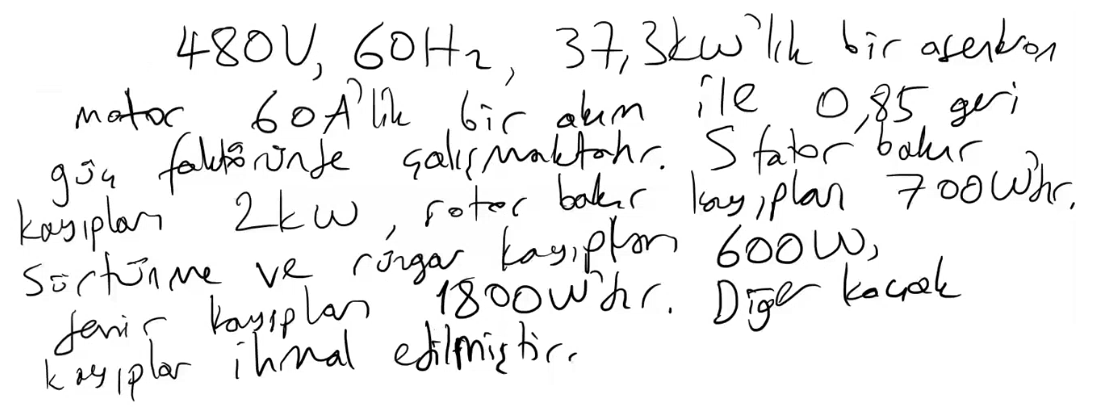 480V, 60Hz, 37,3kw'lık bir asenkron
motor 60A'lik bir akım ile 0,85 geri
güç faktöründe çalışmaktadır. Stator bakır
kayıpları 2kw, rotor bakır kayıpları 700W'dır.
Sürtünme ve rüzgar kayıpları 600W,
demir kayıpları 1800W'dır. Diğer kaçak
kayıplar ihmal edilmiştir.